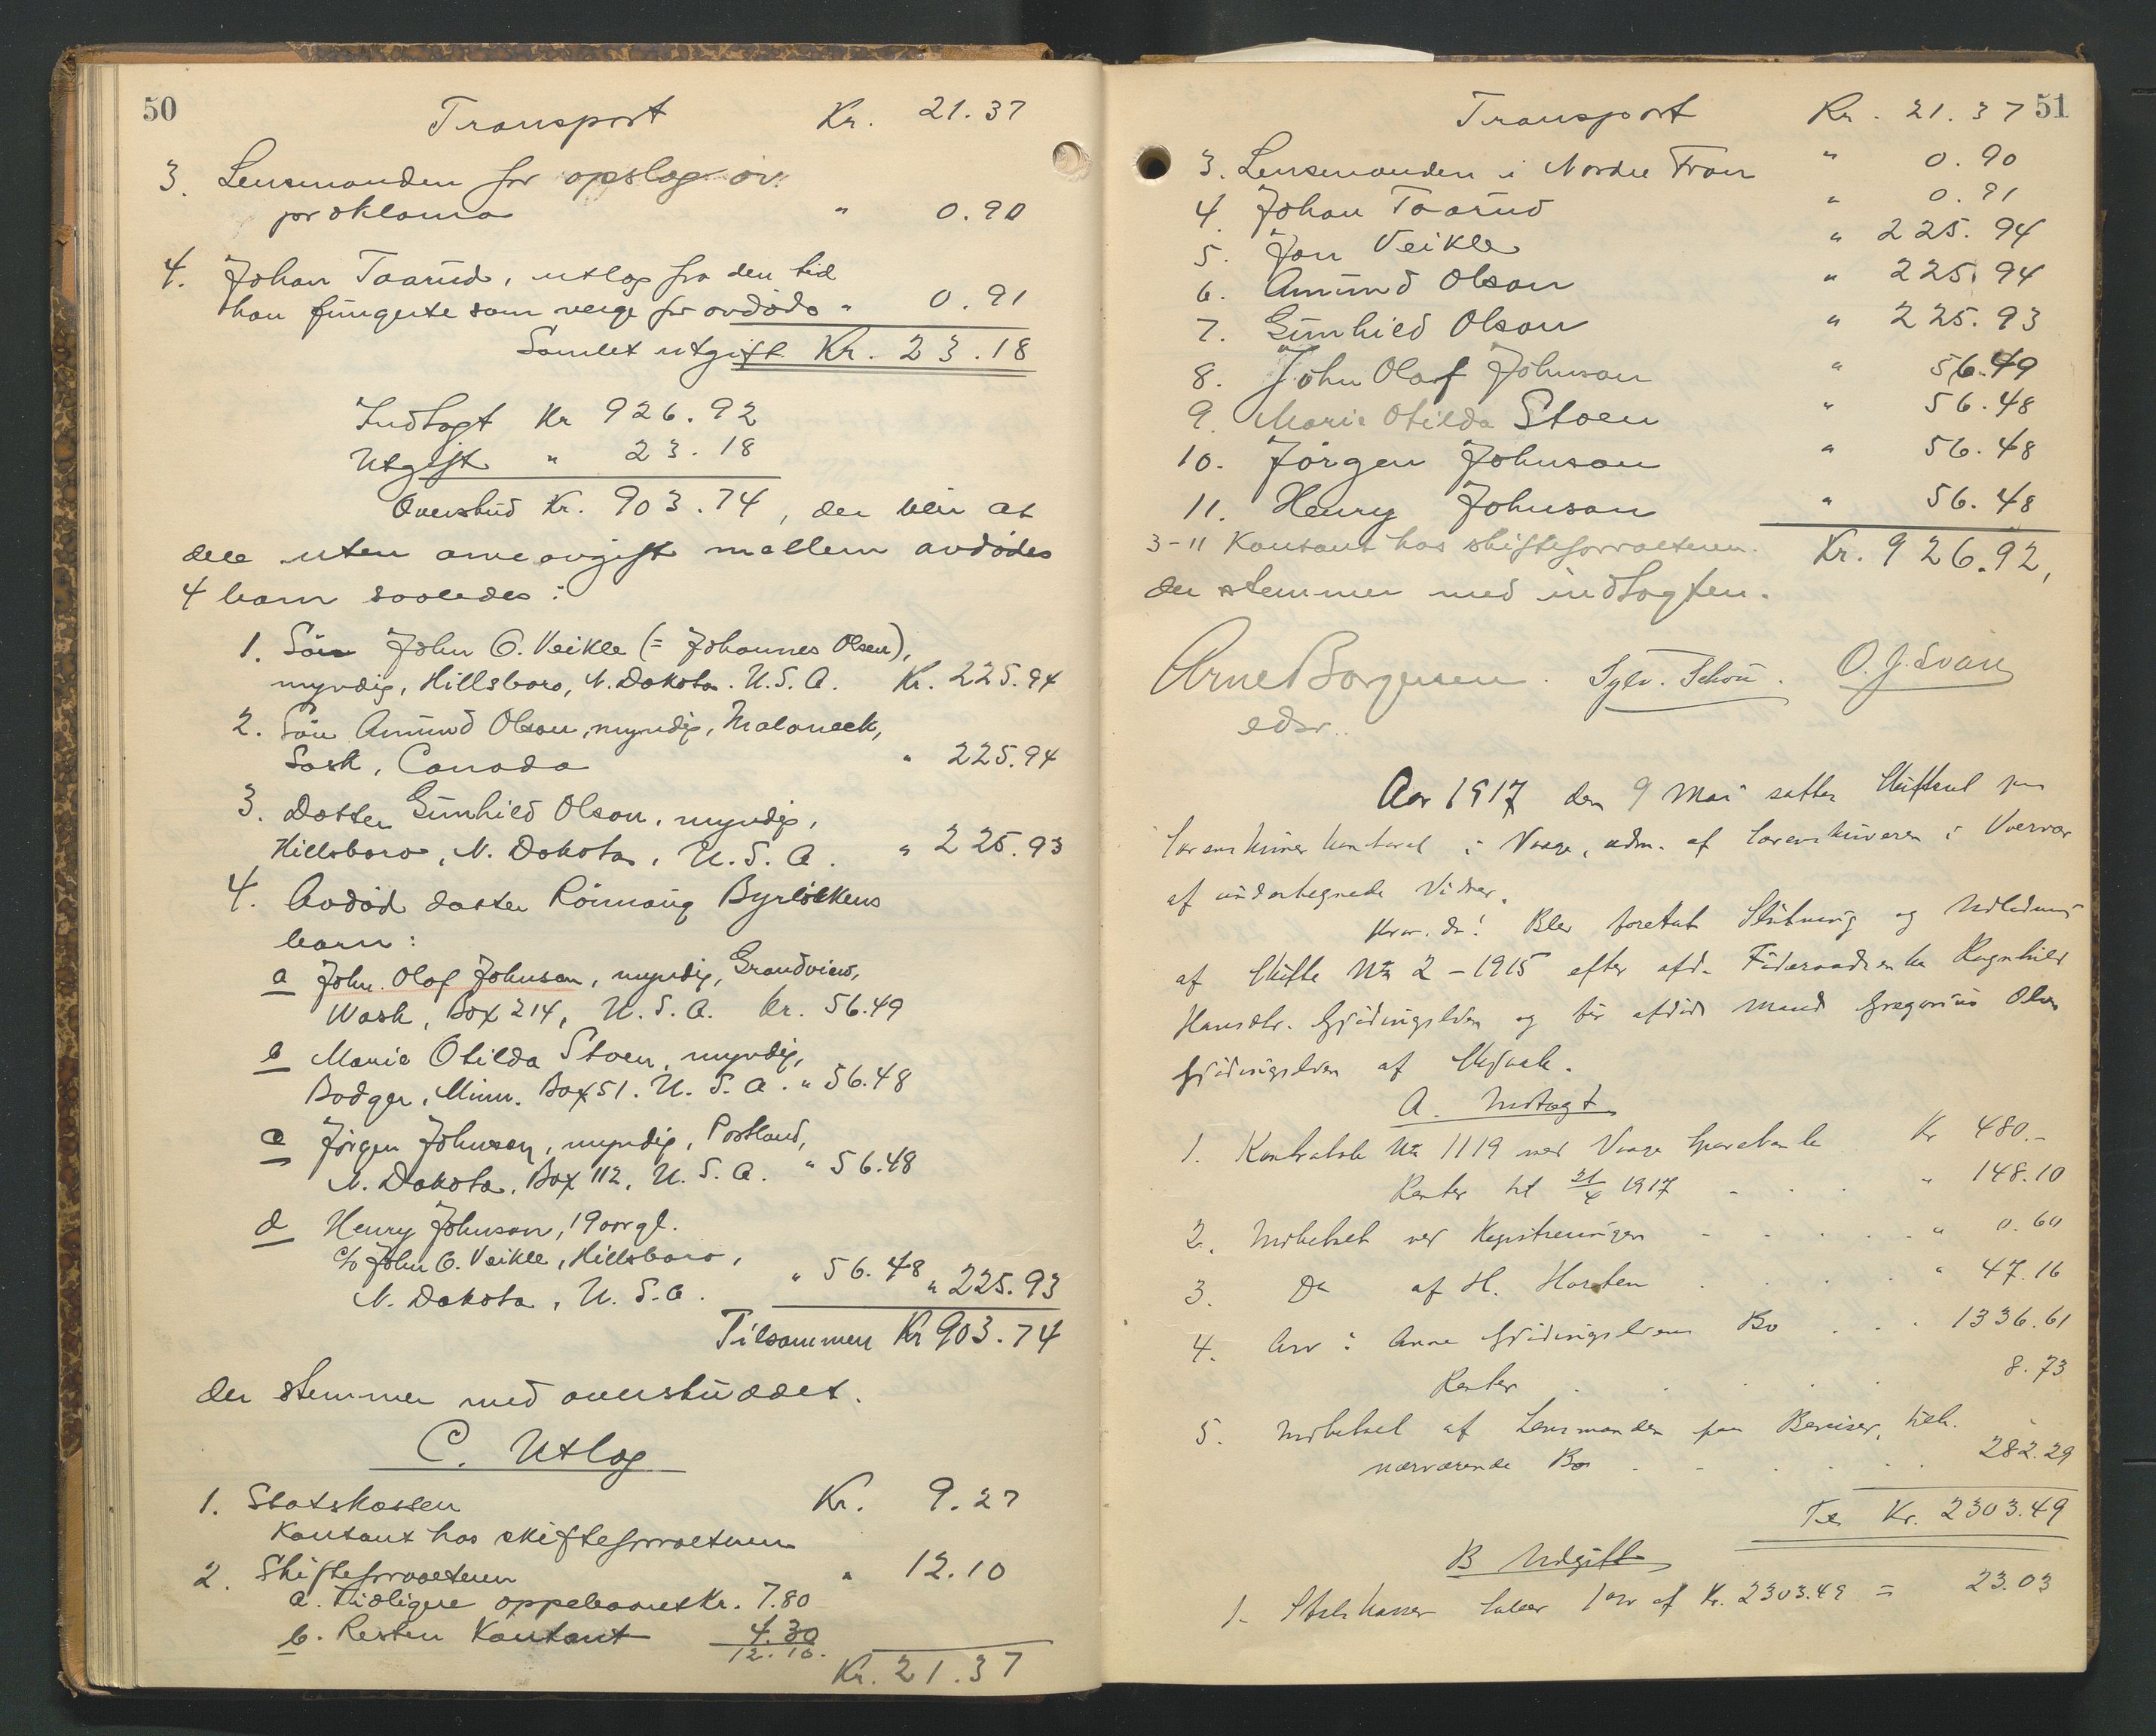 50
Transport Kr. 21.37
3. Lensmanden for opslag av
proklama " 0.90
4. Johan Taarud, utlæg fra den tid
han fungerte som verge for avdøde " 0.91
Samlet utgift Kr. 23.18
Indtægt Kr 926.92
Utgift " 23.18
Overskud Kr. 903.74, der blir at
dele uten arveavgift mellem avdødes
4 barn saaledes:
1. Søn John O. Veikle (= Johannes Olsen),
myndig, Hillsboro, N. Dakota. U.S.A. Kr. 225.94
2. Søn Amund Olson, myndig, Maloneck,
Sask, Canada " 225.94
3. Datter Gunhild Olson, myndig,
Hillsboro, N. Dakota, U.S.A. " 225.93
4. Avdød datter Rønnaug Byrløkkens
barn:
a John Olaf Johnson, myndig, Grandview,
Wash, Box 214, U.S.A. Kr. 56.49
b Marie Otilda Stoen, myndig,
Badger, Minn. Box 51. U.S.A. " 56.48
c Jørgen Johnson, myndig, Portland,
N. Dakota, Box 112, U.S.A. " 56.48
d Henry Johnson, 19 aar gl.
c/o John O. Veikle, Hillsboro,
N. Dakota, U.S.A. " 56.48 " 225.93
Tilsammen Kr 903.74
der stemmer med overskuddet.
C. Utlæg
1. Statskassen Kr. 9.27
Kontant hos skifteforvalteren
2. Skifteforvalteren " 12.10
a. Tidligere oppebaaret Kr. 7.80
b. Resten Kontant 4.30
12.10.
Kr. 21.37
51
Transport Kr. 21.37
3. Lensmanden i Nordre Fron " 0.90
4. Johan Taarud " 0.91
5. Jon Veikle " 225.94
6. Amund Olson " 225.94
7. Gunhild Olson " 225.93
8. John Olaf Johnson " 56.49
9. Marie Otilda Stoen " 56.48
10. Jørgen Johnson " 56.48
11. Henry Johnson " 56.48
3-11 Kontant hos skifteforvalteren. Kr. 926.92,
der stemmer med indtægten.
Arne Borgersen. Sylv. Schou. O. J. Svare
edsv.
Aar 1917 den 9 Mai sattes Skifteret paa
Sorenskriverkontoret i Vaage, adm. af Sorenskriveren i Overvær
af undertegnede Vidner.
Hvor da: Blev foretat Slutning og Udlodning
af Skifte No 2 – 1915 efter afd. Føderaadsenke Ragnhild
Hansdtr. Gjedingslien og før afdøde Mand Gregorius Olsen
Gjedingslien af Skjaak.
A. Indtægt
1. Kontrabok No 1119 med Vaage Sparebank Kr 480.-
Renter til 21/4 1917 " 148.10
2. Indbetalt ved Registreringen " 0.60
3. Do af H. Harsten " 47.16
4. Arv i Anne Gjedingsliens Bo 1336.61
Renter 8.73
5. Indbetalt af Lensmanden paa Beviser, tilh.
nærværende Bo 282.29
Tils Kr. 2303.49
B Udgift
1. Statskassen taber 1% af Kr. 2303.49 = 23.03